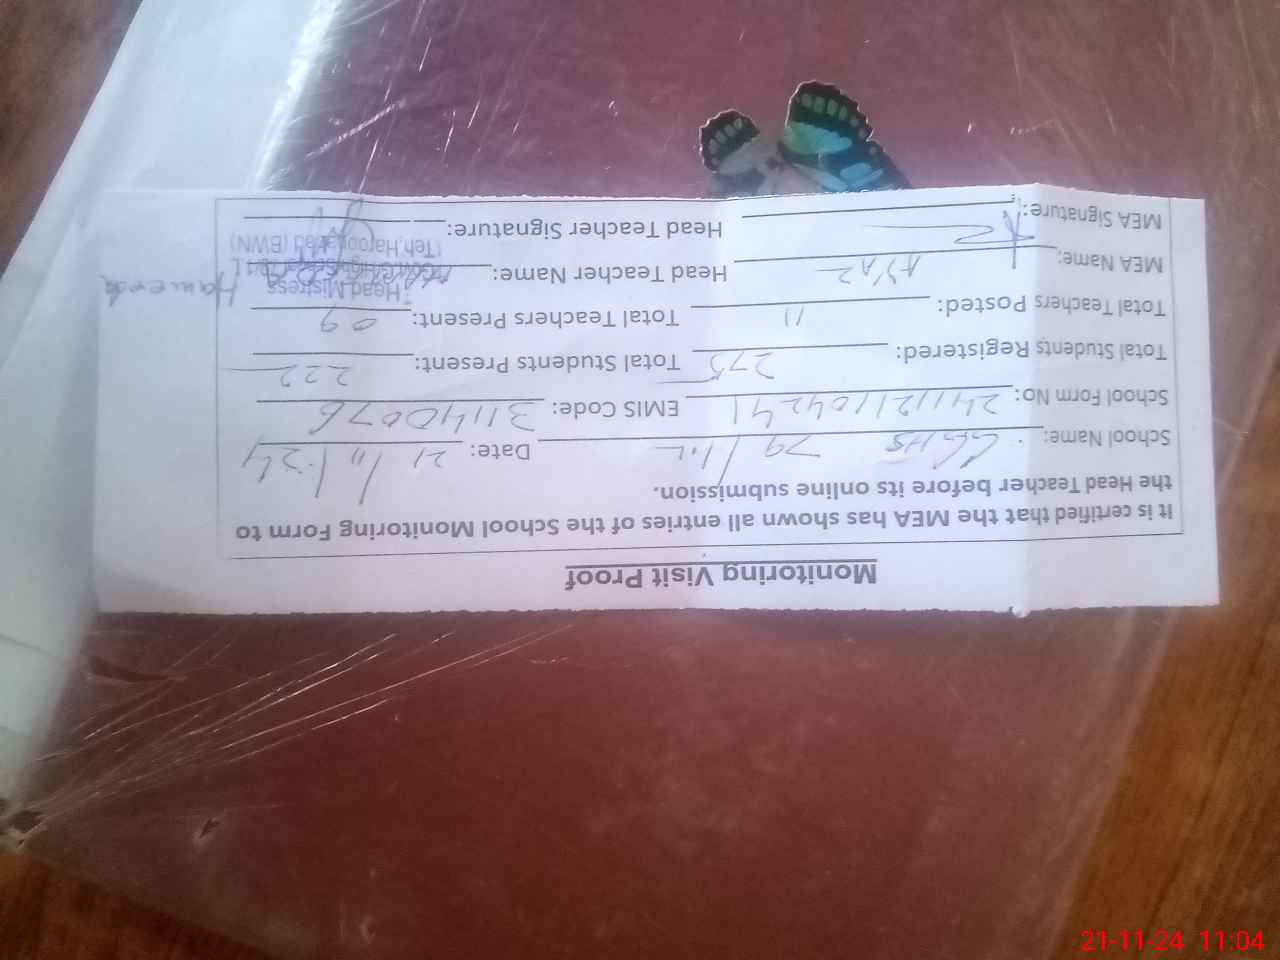 Monitoring Visit Proof
It is certified that the MEA has shown all entries of the School Monitoring Form to
the Head Teacher before its online submission.
School Name: GGHS 79/4.L Date: 21/11/24
School Form No: 241121104241 EMIS Code: 31140076
Total Students Registered: 275 Total Students Present: 222
Total Teachers Posted: 11 Total Teachers Present: 09
MEA Name: Head Teacher Name:
Head Mistress
(Teh, Haroonabad (BWN)
MEA Signature: Head Teacher Signature:
21-11-24 11:04